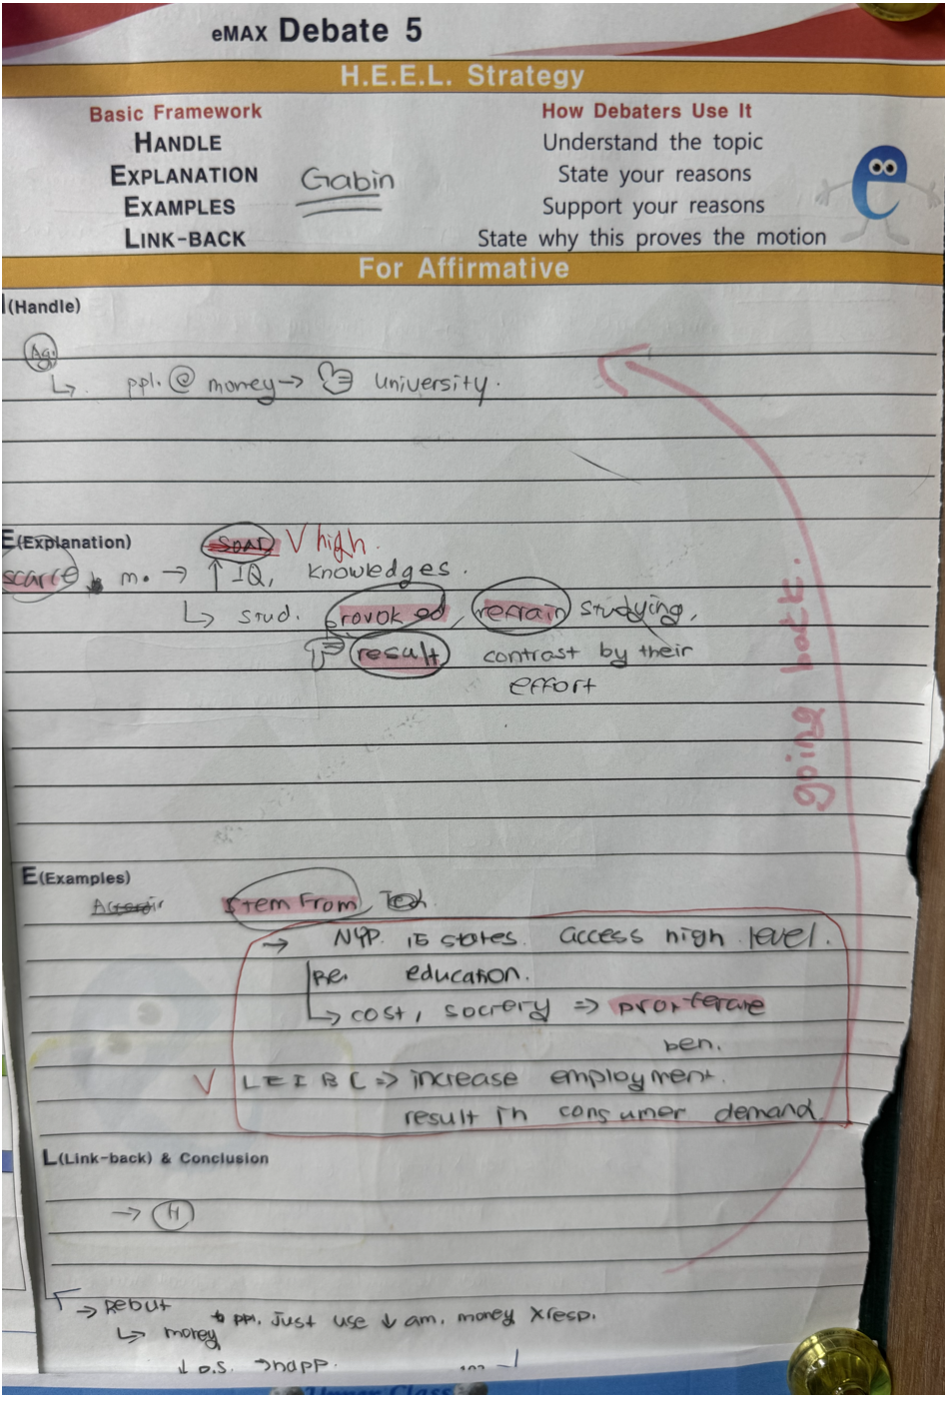 eMAX Debate 5
H.E.E.L. Strategy
Basic Framework How Debaters Use It
HANDLE Understand the topic
EXPLANATION State your reasons
Gabin
EXAMPLES Support your reasons
LINK-BACK State why this proves the motion
For Affirmative
(Handle)
Ag.
↳ ppl. @ money → university.
E(Explanation)
V high.
scarce m. → ↑ IQ, knowledges.
↳ stud. provoked, refrain studying,
result contrast by their
effort
going back.
E(Examples)
Stem From,
→ NYP. 15 states. access high level.
Re. education.
↳ cost, socrery ⇒
ben.
V LEIBC ⇒ increase employment.
result in consumer demand.
L(Link-back) & Conclusion
→ H
→ Rebut
ppl. Just use ↓ am. money X resp.
↳ money
↓ o.s. → happ.
Upper Class